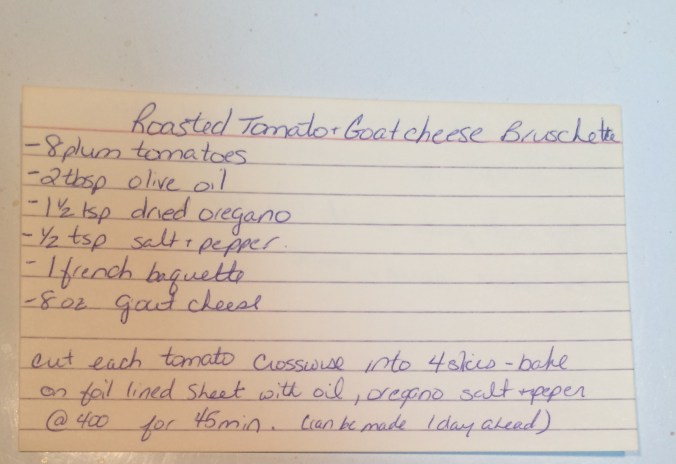 Roasted Tomato + Goat cheese Bruschetta
- 8 plum tomatoes
- 2 tbsp olive oil
- 1 1/2 tsp dried oregano
- 1/2 tsp salt + pepper.
- 1 french baguette
- 8 oz goat cheese
cut each tomato crosswise into 4 slices - bake
on foil lined sheet with oil, oregano salt + peper
@ 400 for 45 min. (can be made 1 day ahead)